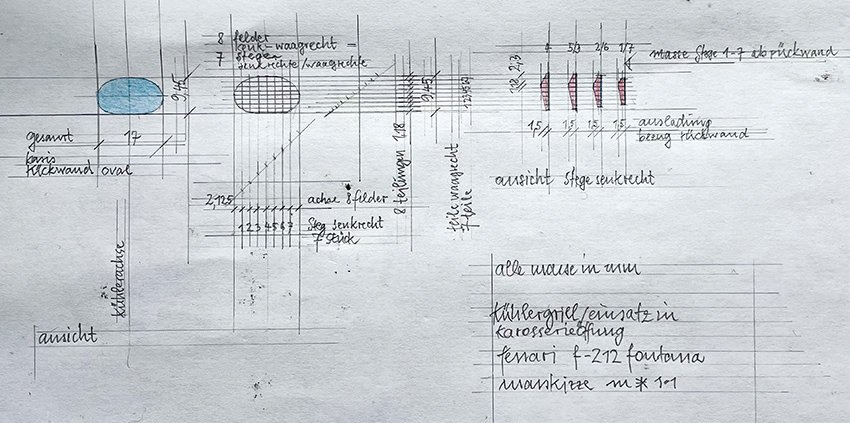 8 felder
senk-waagrecht =
7 stege
senkrechte/waagrechte
9,45
gesamt 17
rückwand oval
2,125
achse 8 felder
1 2 3 4 5 6 7
Steg senkrecht
7 Stück
kühlerachse
ansicht
8 teilungen 1,18
9,45
1 2 3 4 5 6 7
teile waagrecht
7 teile
2,3
1,18
4 5/3 2/6 1/7
masse Stege 1-7 ab rückwand
1,5 1,5 1,5 1,5
ausladung
bezug rückwand
ansicht Stege senkrecht
alle masse in mm
kühlergrill/einsatz in
karosserieöffung
ferrari f-212 fontana